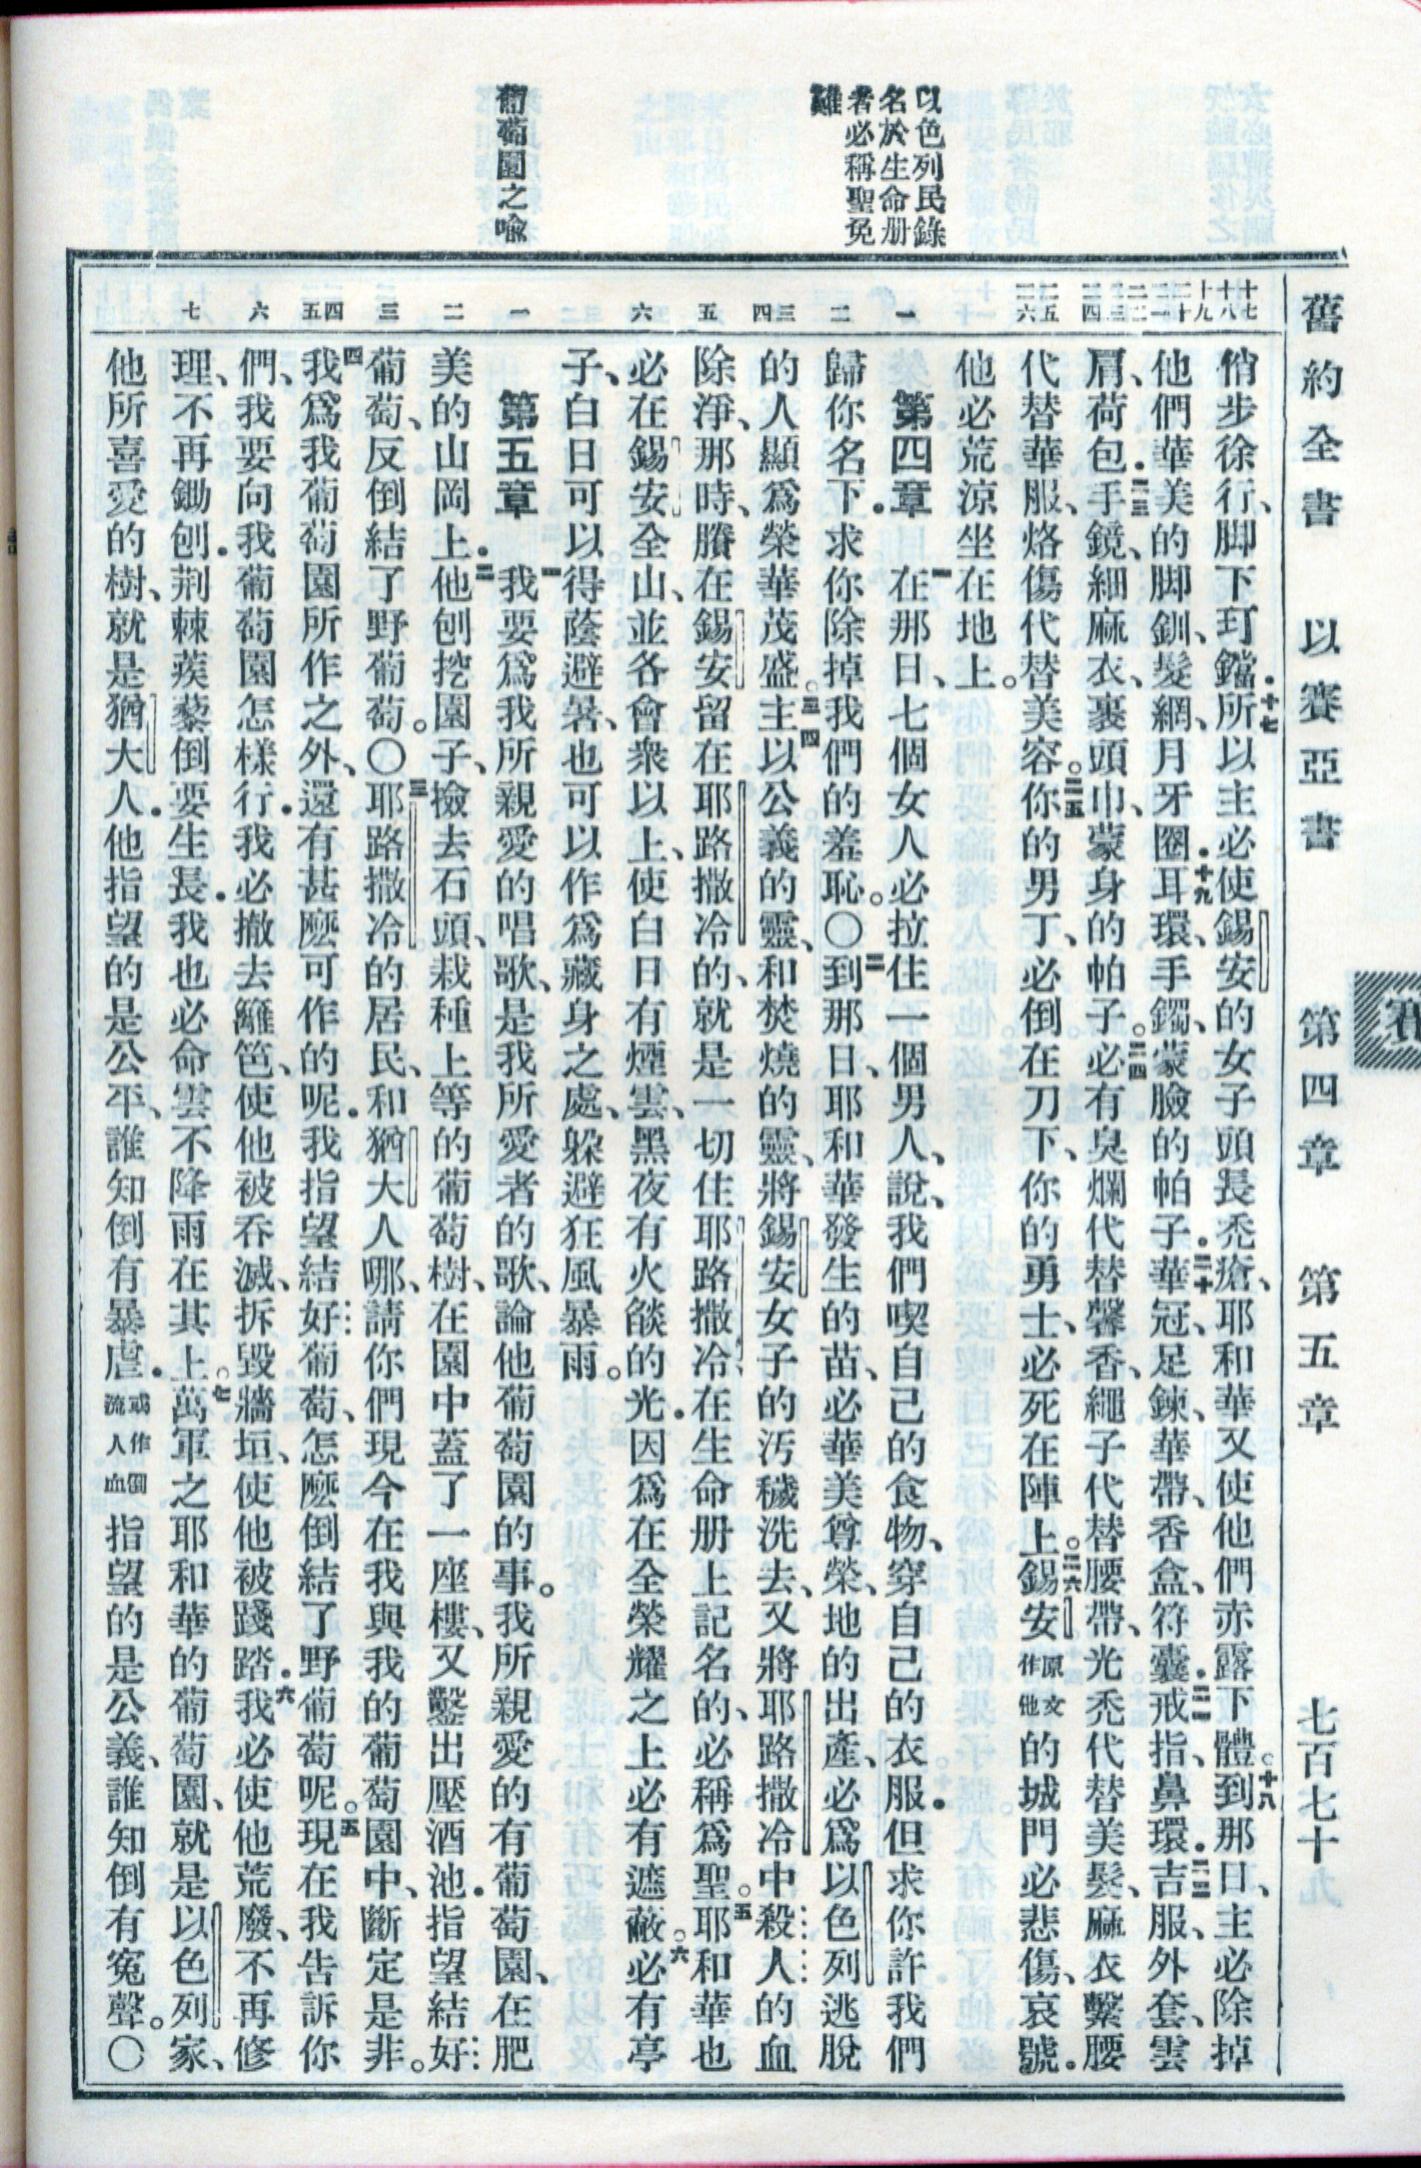 舊約全書 以賽亞書 第四章 第五章 七百七十九
賽
以色列民錄
名於生命册
者必稱聖免
難
葡萄園之喩
十七 十八 十九 二十 二一 二二 二三 二四 二五 二六
一 二 三 四 五 六 一 二 三 四 五 六 七
俏步徐行、脚下玎鐺．十七所以主必使錫安的女子頭長禿瘡、耶和華又使他們赤露下體。十八到那日、主必除掉
他們華美的脚釧、髮網、月牙圈．十九耳環、手鐲、蒙臉的帕子．二十華冠、足鍊、華帶、香盒、符囊．二一戒指、鼻環．二二吉服、外套、雲
肩、荷包．二三手鏡、細麻衣、裹頭巾、蒙身的帕子。二四必有臭爛代替馨香、繩子代替腰帶、光禿代替美髮、麻衣繫腰
代替華服、烙傷代替美容。二五你的男丁、必倒在刀下、你的勇士、必死在陣上。二六錫安原文作他的城門必悲傷、哀號．
他必荒涼坐在地上。
第四章 一在那日、七個女人必拉住一個男人、說、我們喫自己的食物、穿自己的衣服．但求你許我們
歸你名下．求你除掉我們的羞恥。〇二到那日、耶和華發生的苗、必華美尊榮、地的出產、必爲以色列逃脫
的人顯爲榮華茂盛。三四主以公義的靈、和焚燒的靈、將錫安女子的汚穢洗去、又將耶路撒冷中殺人的血
除淨、那時、賸在錫安留在耶路撒冷的、就是一切住耶路撒冷、在生命册上記名的、必稱爲聖。五耶和華也
必在錫安全山、並各會衆以上、使白日有煙雲、黑夜有火燄的光．因爲在全榮耀之上必有遮蔽。六必有亭
子、白日可以得蔭避暑、也可以作爲藏身之處、躱避狂風暴雨。
第五章 一我要爲我所親愛的唱歌、是我所愛者的歌、論他葡萄園的事。我所親愛的有葡萄園、在肥
美的山岡上．二他刨挖園子、撿去石頭、栽種上等的葡萄樹、在園中蓋了一座樓、又鑿出壓酒池．指望結好
葡萄、反倒結了野葡萄。〇三耶路撒冷的居民、和猶大人哪、請你們現今在我與我的葡萄園中、斷定是非。
四我爲我葡萄園所作之外、還有甚麼可作的呢．我指望結好葡萄、怎麼倒結了野葡萄呢。五現在我告訴你
們、我要向我葡萄園怎樣行．我必撤去籬笆、使他被吞滅、拆毀牆垣、使他被踐踏．六我必使他荒廢、不再修
理、不再鋤刨．荆棘蒺藜倒要生長．我也必命雲不降雨在其上。七萬軍之耶和華的葡萄園、就是以色列家、
他所喜愛的樹、就是猶大人．他指望的是公平、誰知倒有暴虐．或作倒流人血指望的是公義、誰知倒有冤聲。〇